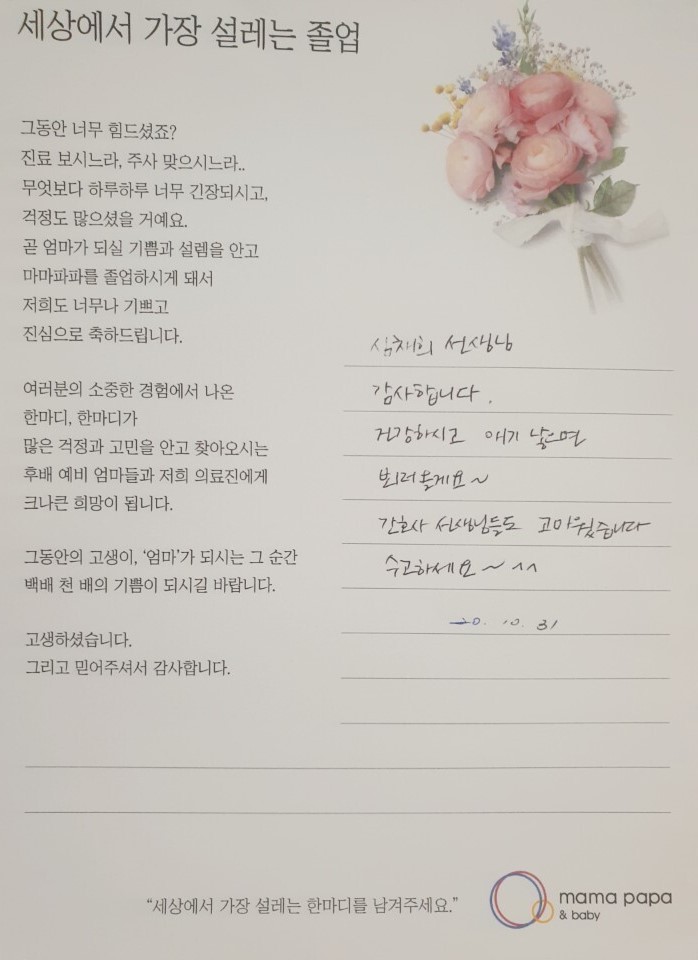 세상에서 가장 설레는 졸업
그동안 너무 힘드셨죠?
진료 보시느라, 주사 맞으시느라..
무엇보다 하루하루 너무 긴장되시고,
걱정도 많으셨을 거예요.
곧 엄마가 되실 기쁨과 설렘을 안고
마마파파를 졸업하시게 돼서
저희도 너무나 기쁘고
진심으로 축하드립니다.
여러분의 소중한 경험에서 나온
한마디, 한마디가
많은 걱정과 고민을 안고 찾아오시는
후배 예비 엄마들과 저희 의료진에게
크나큰 희망이 됩니다.
그동안의 고생이, ‘엄마’가 되시는 그 순간
백배 천 배의 기쁨이 되시길 바랍니다.
고생하셨습니다.
그리고 믿어주셔서 감사합니다.
심채희 선생님
감사합니다.
건강하시고 애기 낳으면
뵈러올게요~
간호사 선생님들도 고마웠습니다
수고하세요~^^
20. 10. 31
“세상에서 가장 설레는 한마디를 남겨주세요.”
mama papa
& baby